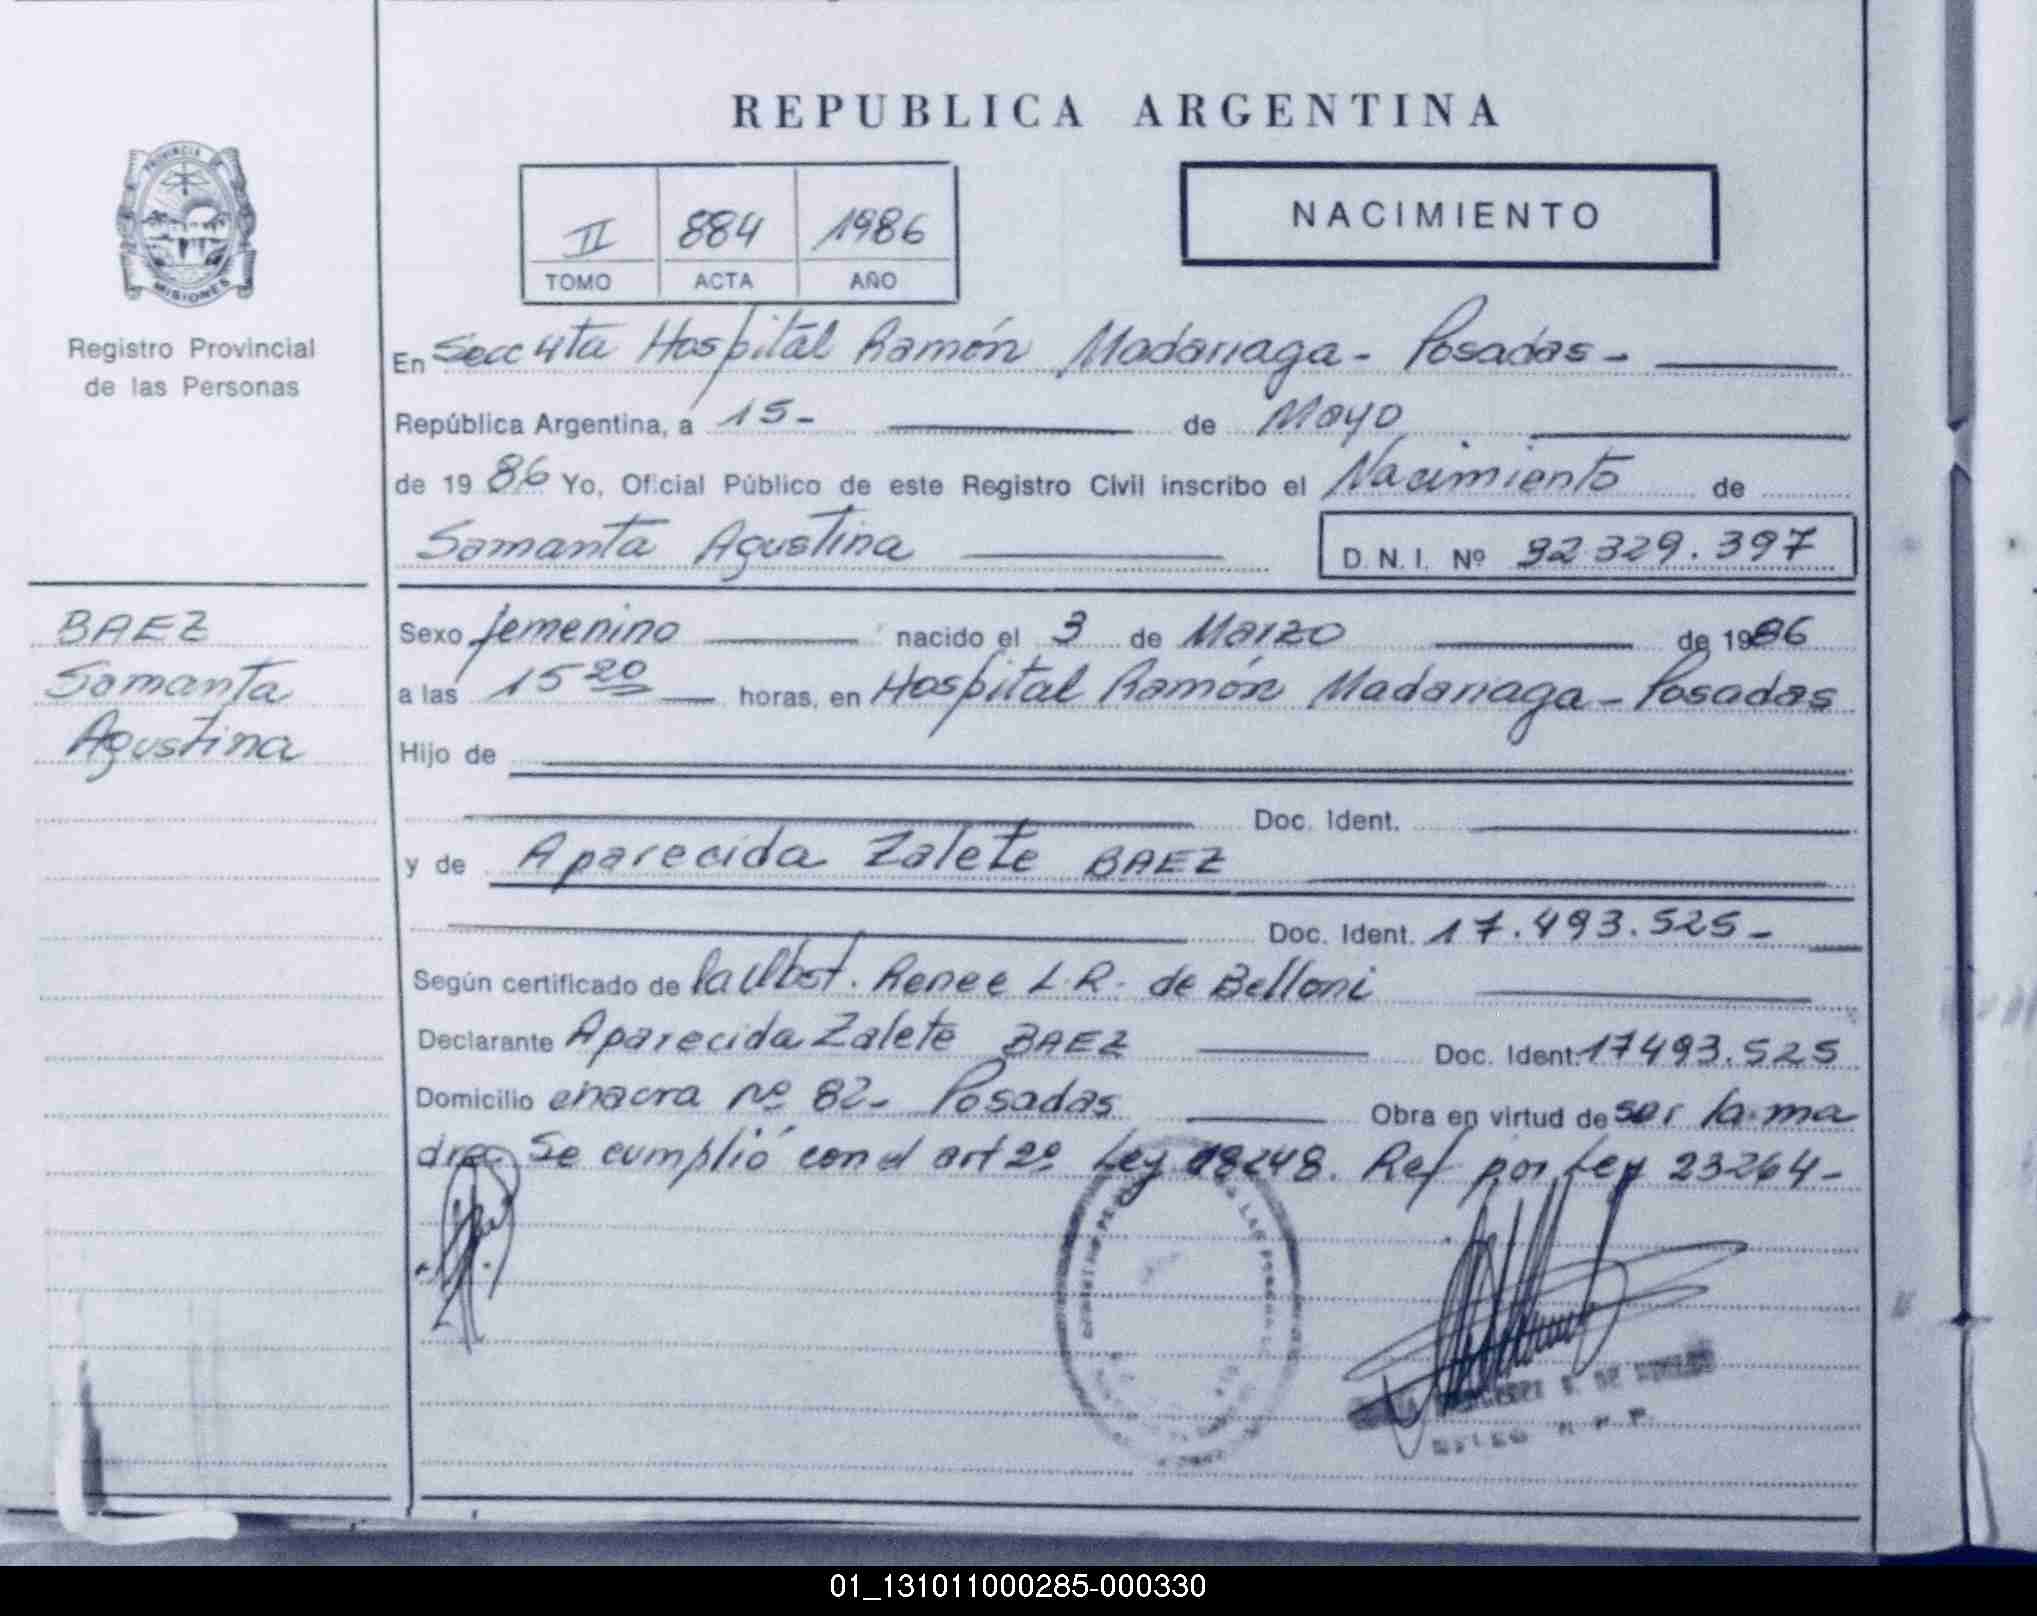 REPUBLICA ARGENTINA
PROVINCIA
MISIONES
Registro Provincial
de las Personas
II 884 1986
TOMO ACTA AÑO
NACIMIENTO
En Secc 4ta Hospital Ramón Madariaga - Posadas -
República Argentina, a 15 - de Mayo
de 1986 Yo, Oficial Público de este Registro Civil inscribo el Nacimiento de
Samanta Agustina D.N.I. Nº 92.329.397
BAEZ
Samanta
Agustina
Sexo femenino nacido el 3 de Marzo de 1986
a las 15 20 horas, en Hospital Ramón Madariaga - Posadas
Hijo de
Doc. Ident.
y de Aparecida Zalete BAEZ
Doc. Ident. 17.493.525 -
Según certificado de la Obst. Renee L.R. de Belloni
Declarante Aparecida Zalete BAEZ Doc. Ident. 17493.525
Domicilio chacra nº 82 - Posadas Obra en virtud de ser la ma
dre. Se cumplió con el art 2º Ley 18248. Ref por Ley 23264 -
01_131011000285-000330